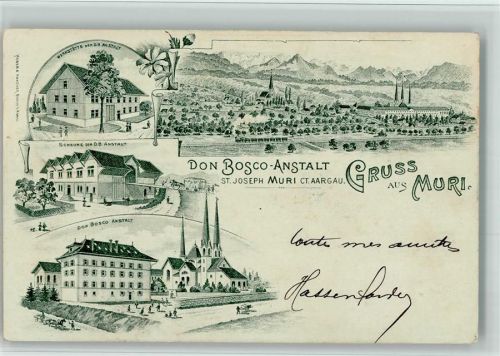 WERKSTÄTTE DER D.B. ANSTALT
SCHEUNE DER D.B. ANSTALT
DON BOSCO-ANSTALT
ST. JOSEPH MURI CT. AARGAU.
GRUSS AUS MURI.
DON BOSCO ANSTALT
toutes mes amitiés